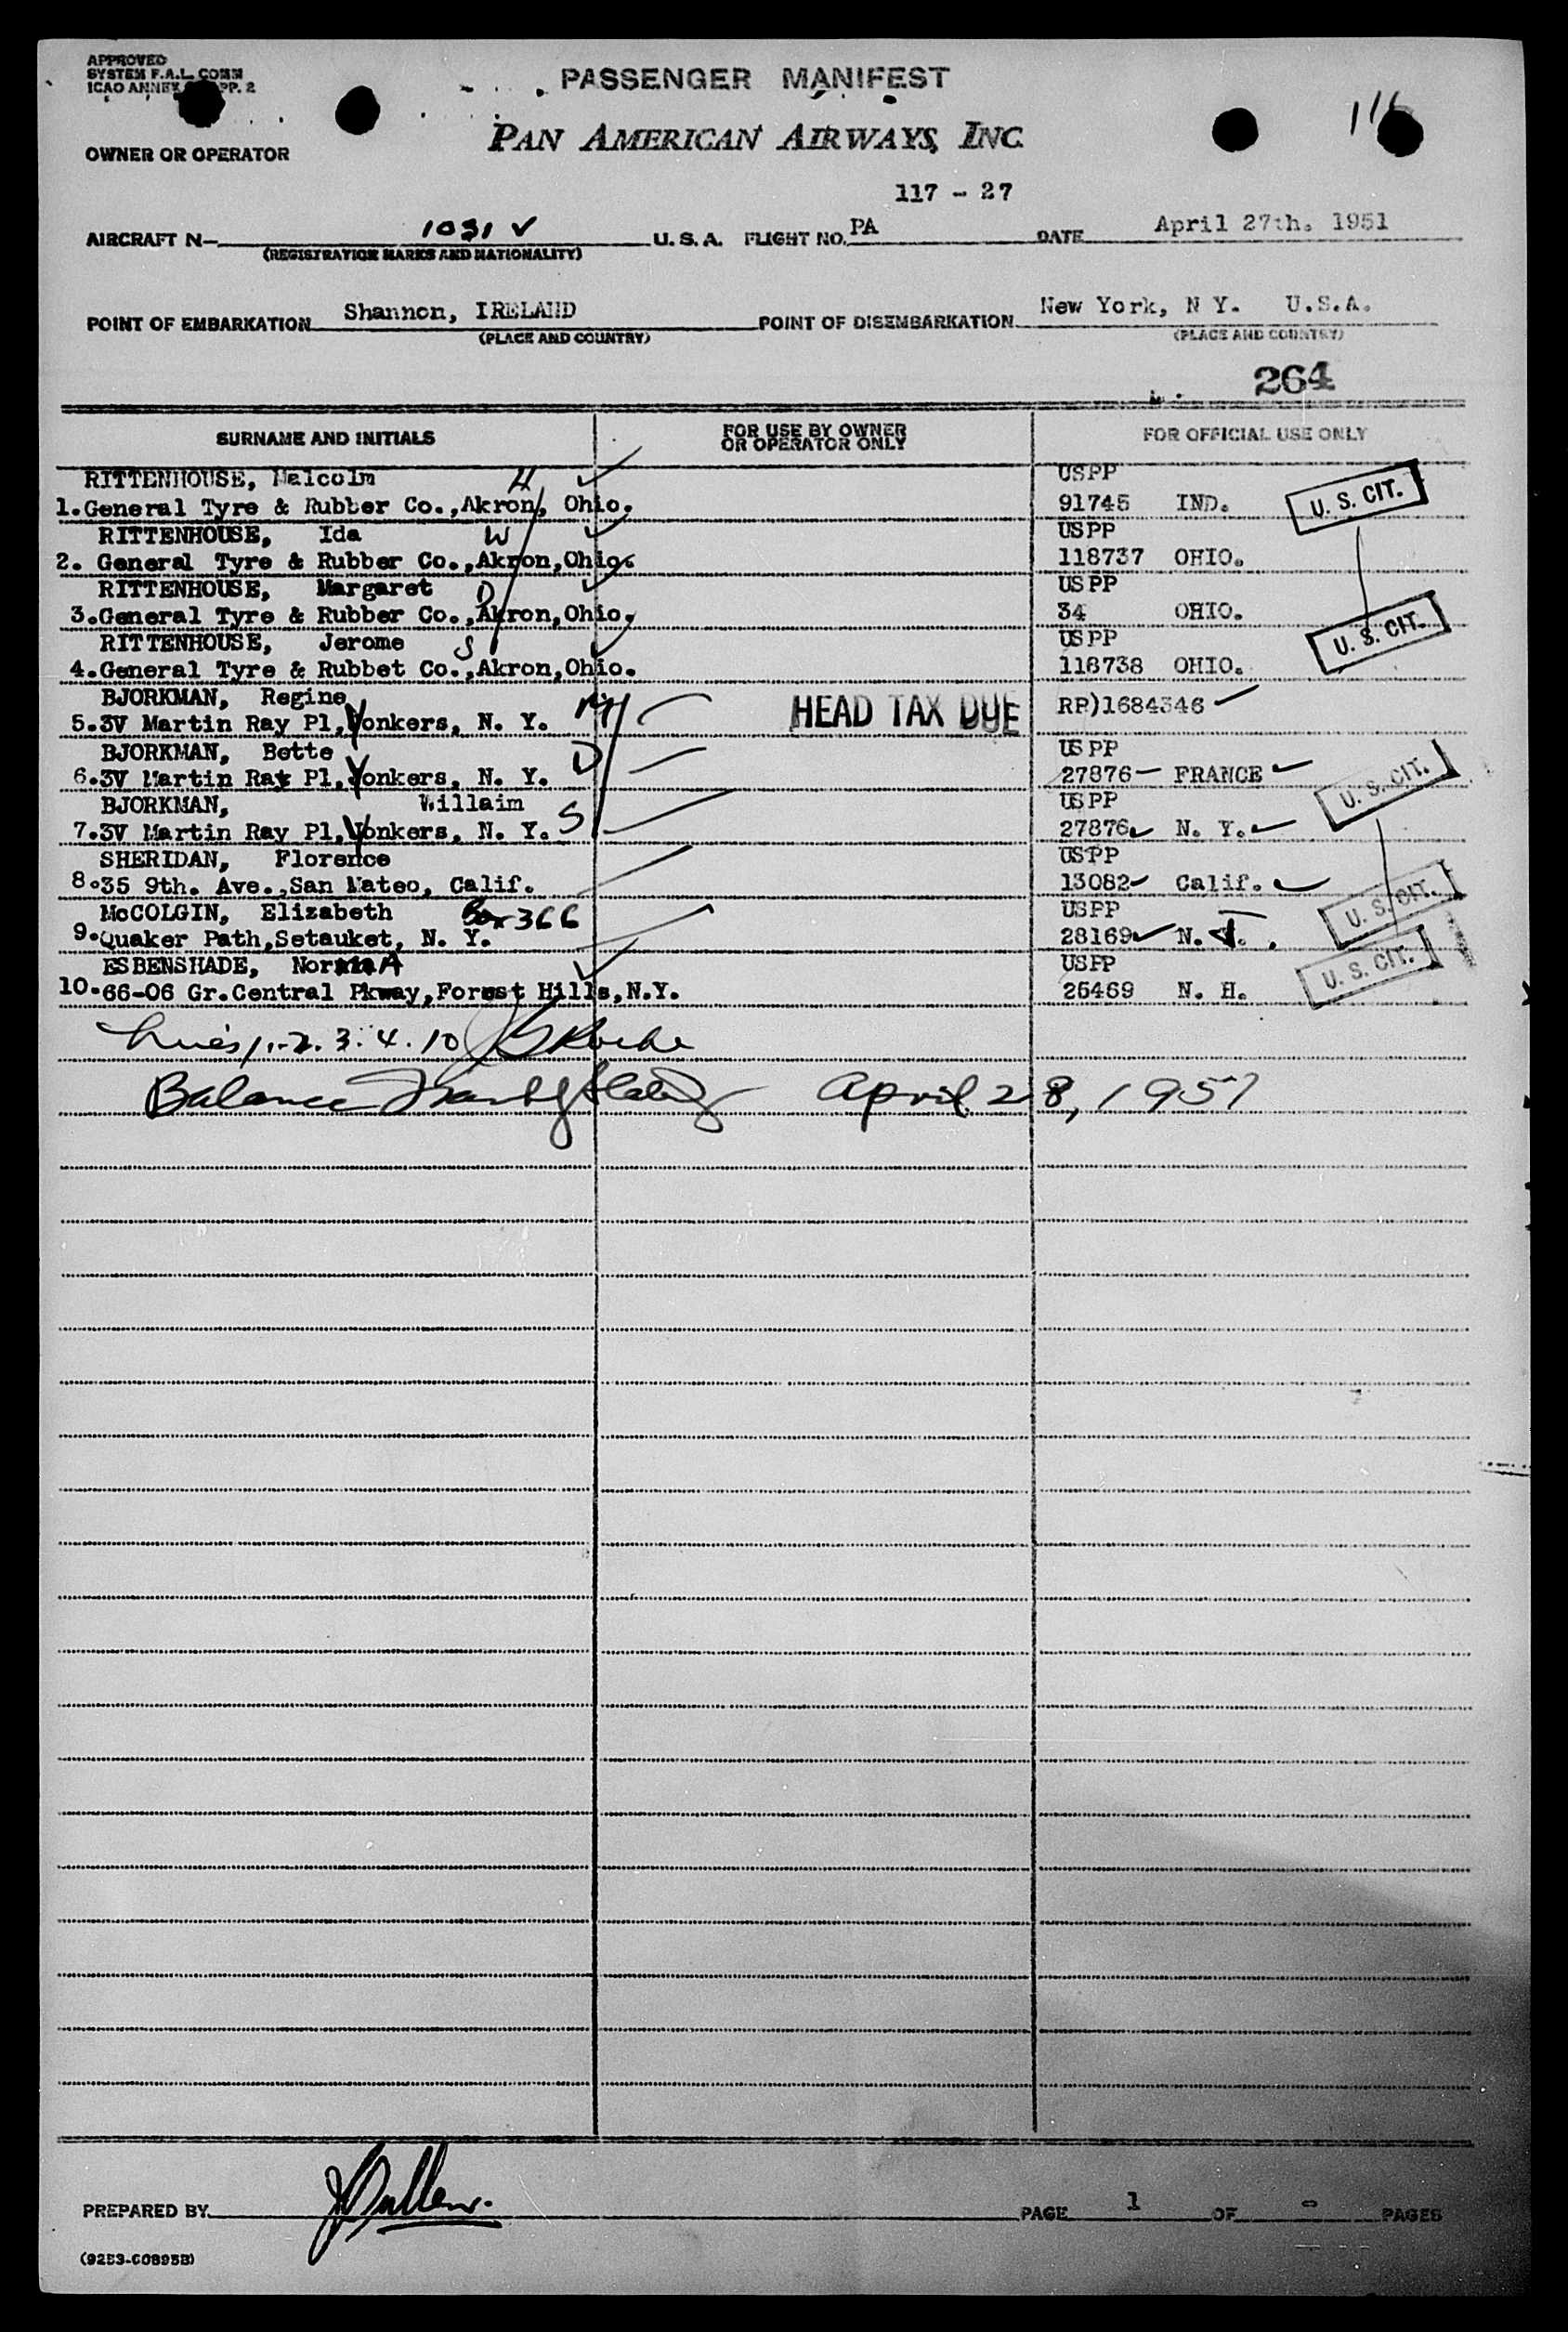 APPROVED
SYSTEM F.A.L. COMM
ICAO ANNEX PP. 2
PASSENGER MANIFEST
116
PAN AMERICAN AIRWAYS, INC.
OWNER OR OPERATOR
117 - 27
AIRCRAFT N- 1031 V U. S. A. FLIGHT NO. PA DATE April 27th. 1951
(REGISTRATION MARKS AND NATIONALITY)
POINT OF EMBARKATION Shannon, IRELAND POINT OF DISEMBARKATION New York, N Y. U.S.A.
(PLACE AND COUNTRY) (PLACE AND COUNTRY)
264
SURNAME AND INITIALS FOR USE BY OWNER OR OPERATOR ONLY FOR OFFICIAL USE ONLY
RITTENHOUSE, Malcolm H USPP
1. General Tyre & Rubber Co., Akron, Ohio. 91745 IND. U. S. CIT.
RITTENHOUSE, Ida W USPP
2. General Tyre & Rubber Co.,Akron,Ohio. 118737 OHIO.
RITTENHOUSE, Margaret D USPP
3.General Tyre & Rubber Co.,Akron,Ohio. 34 OHIO. U. S. CIT.
RITTENHOUSE, Jerome S USPP
4.General Tyre & Rubbet Co.,Akron,Ohio. 118738 OHIO.
BJORKMAN, Regine M
5.3V Martin Ray Pl, Yonkers, N. Y. HEAD TAX DUE RP)1684346
BJORKMAN, Bette D USPP
6.3V Martin Rat Pl, Yonkers, N. Y. 27876 FRANCE U. S. CIT.
BJORKMAN, Willaim USPP
7.3V Martin Ray Pl, Yonkers, N. Y. S 27876 N. Y.
SHERIDAN, Florence USPP
8.35 9th. Ave.,San Mateo, Calif. 13082 Calif. U. S. CIT.
McCOLGIN, Elizabeth Box 366 USPP
9.Quaker Path,Setauket, N. Y. 28169 N. J. U. S. CIT.
ESBENSHADE, Norma USPP
10.66-06 Gr.Central Pkway,Forest Hills,N.Y. 25469 N. H.
Lines 1.-2. 3. 4. 10
Balance April 28, 1951
PREPARED BY PAGE 1 OF PAGES
(92E3-C0895B)